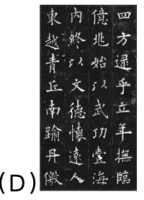 四方逮乎立年撫臨
億兆始以武功壹海
内終以文德懷遠人
東越青丘南踰丹徼
(D)